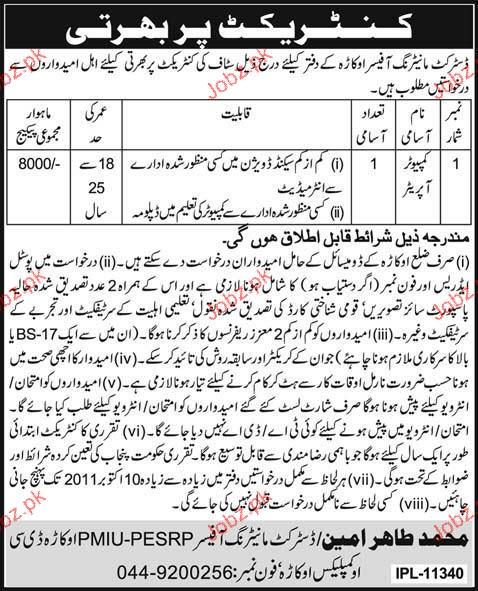 کنٹریکٹ پر بھرتی
ڈسٹرکٹ مانیٹرنگ آفیسر اوکاڑہ کے دفتر کیلئے درج ذیل سٹاف کی کنٹریکٹ پر بھرتی کیلئے اہل امیدواروں سے
درخواستیں مطلوب ہیں۔
نمبر شمار | نام آسامی | تعداد آسامی | قابلیت | عمر کی حد | ماہوار مجموعی پیکیج
1 | کمپیوٹر آپریٹر | 1 | (i) کم از کم سیکنڈ ڈویژن میں کسی منظور شدہ ادارے سے انٹرمیڈیٹ (ii) کسی منظور شدہ ادارے سے کمپیوٹر کی تعلیم میں ڈپلومہ | 18 سے 25 سال | 8000/-
مندرجہ ذیل شرائط قابل اطلاق ھوں گی۔
(i) صرف ضلع اوکاڑہ کے ڈومیسائل کے حامل امیدواران درخواست دے سکتے ہیں۔ (ii) درخواست میں پوسٹل
ایڈریس اور فون نمبر (اگر دستیاب ہو) کا شامل ہونا لازمی ہے اور اس کے ہمراہ 2 عدد تصدیق شدہ حالیہ
پاسپورٹ سائز تصویریں، قومی شناختی کارڈ کی تصدیق شدہ نقول، تعلیمی اہلیت کے سرٹیفکیٹ اور تجربے کے
سرٹیفکیٹ وغیرہ۔ (iii) امیدواروں کو کم از کم 2 معزز ریفرنسوں کا ذکر کرنا ہوگا۔ (ان میں سے ایک BS-17 یا
بالا کا سرکاری ملازم ہونا چاہئے) جو ان کے کریکٹر اور سابقہ روش کی تائید کر سکے۔ (iv) امیدوار کا اچھی صحت میں
ہونا حسب ضرورت نارمل اوقات کار سے ہٹ کر کام کرنے کیلئے تیار ہونا لازمی ہے۔ (v) امیدواروں کو امتحان/
انٹرویو کیلئے پیش ہونا ہوگا صرف شارٹ لسٹ کئے گئے امیدواروں کو امتحان/انٹرویو کیلئے طلب کیا جائے گا۔
امتحان/انٹرویو میں پیش ہونے کیلئے کوئی ٹی اے/ڈی اے نہیں دیا جائے گا۔ (vi) تقرری کا کنٹریکٹ ابتدائی
طور پر ایک سال کیلئے ہوگا جو باہمی رضا مندی سے قابل توسیع ہوگا۔ تقرری حکومت پنجاب کی تعین کردہ شرائط اور
ضوابط کے تحت ہوگی۔ (vii) ہر لحاظ سے مکمل درخواستیں دفتر میں زیادہ سے زیادہ 10 اکتوبر 2011 تک پہنچ جانی
چاہئیں۔ (viii) کسی لحاظ سے نامکمل درخواست قبول نہیں کی جائے گی۔
محمد طاہر امین/ڈسٹرکٹ مانیٹرنگ آفیسر PMIU-PESRP اوکاڑہ ڈی سی
او کمپلیکس اوکاڑہ فون نمبر: 044-9200256
IPL-11340
Jobz.pk